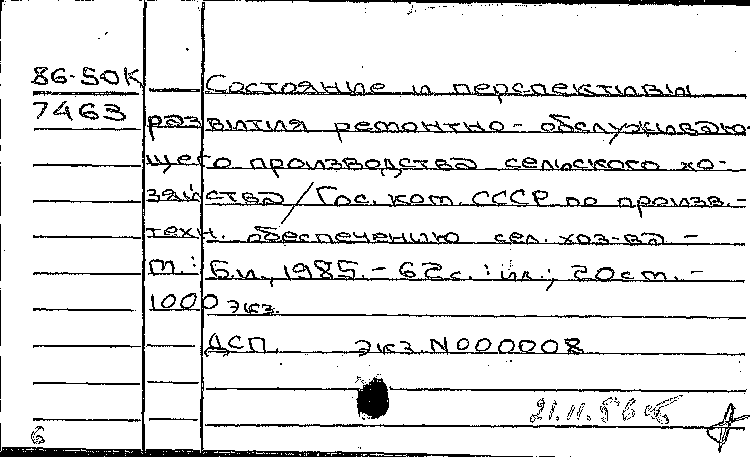 86-5OK Состояние и перспективы
7463 развития ремонтно-обслуживаю-
щего производства сельского хо-
зяйства / Гос. ком. СССР по произв.-
техн. обеспечению сел. хоз-ва -
М.: Б.и., 1985. - 62 с. : ил.; 20 см. -
1000 экз.
ДСП. экз. N 000008
21.11.86
6